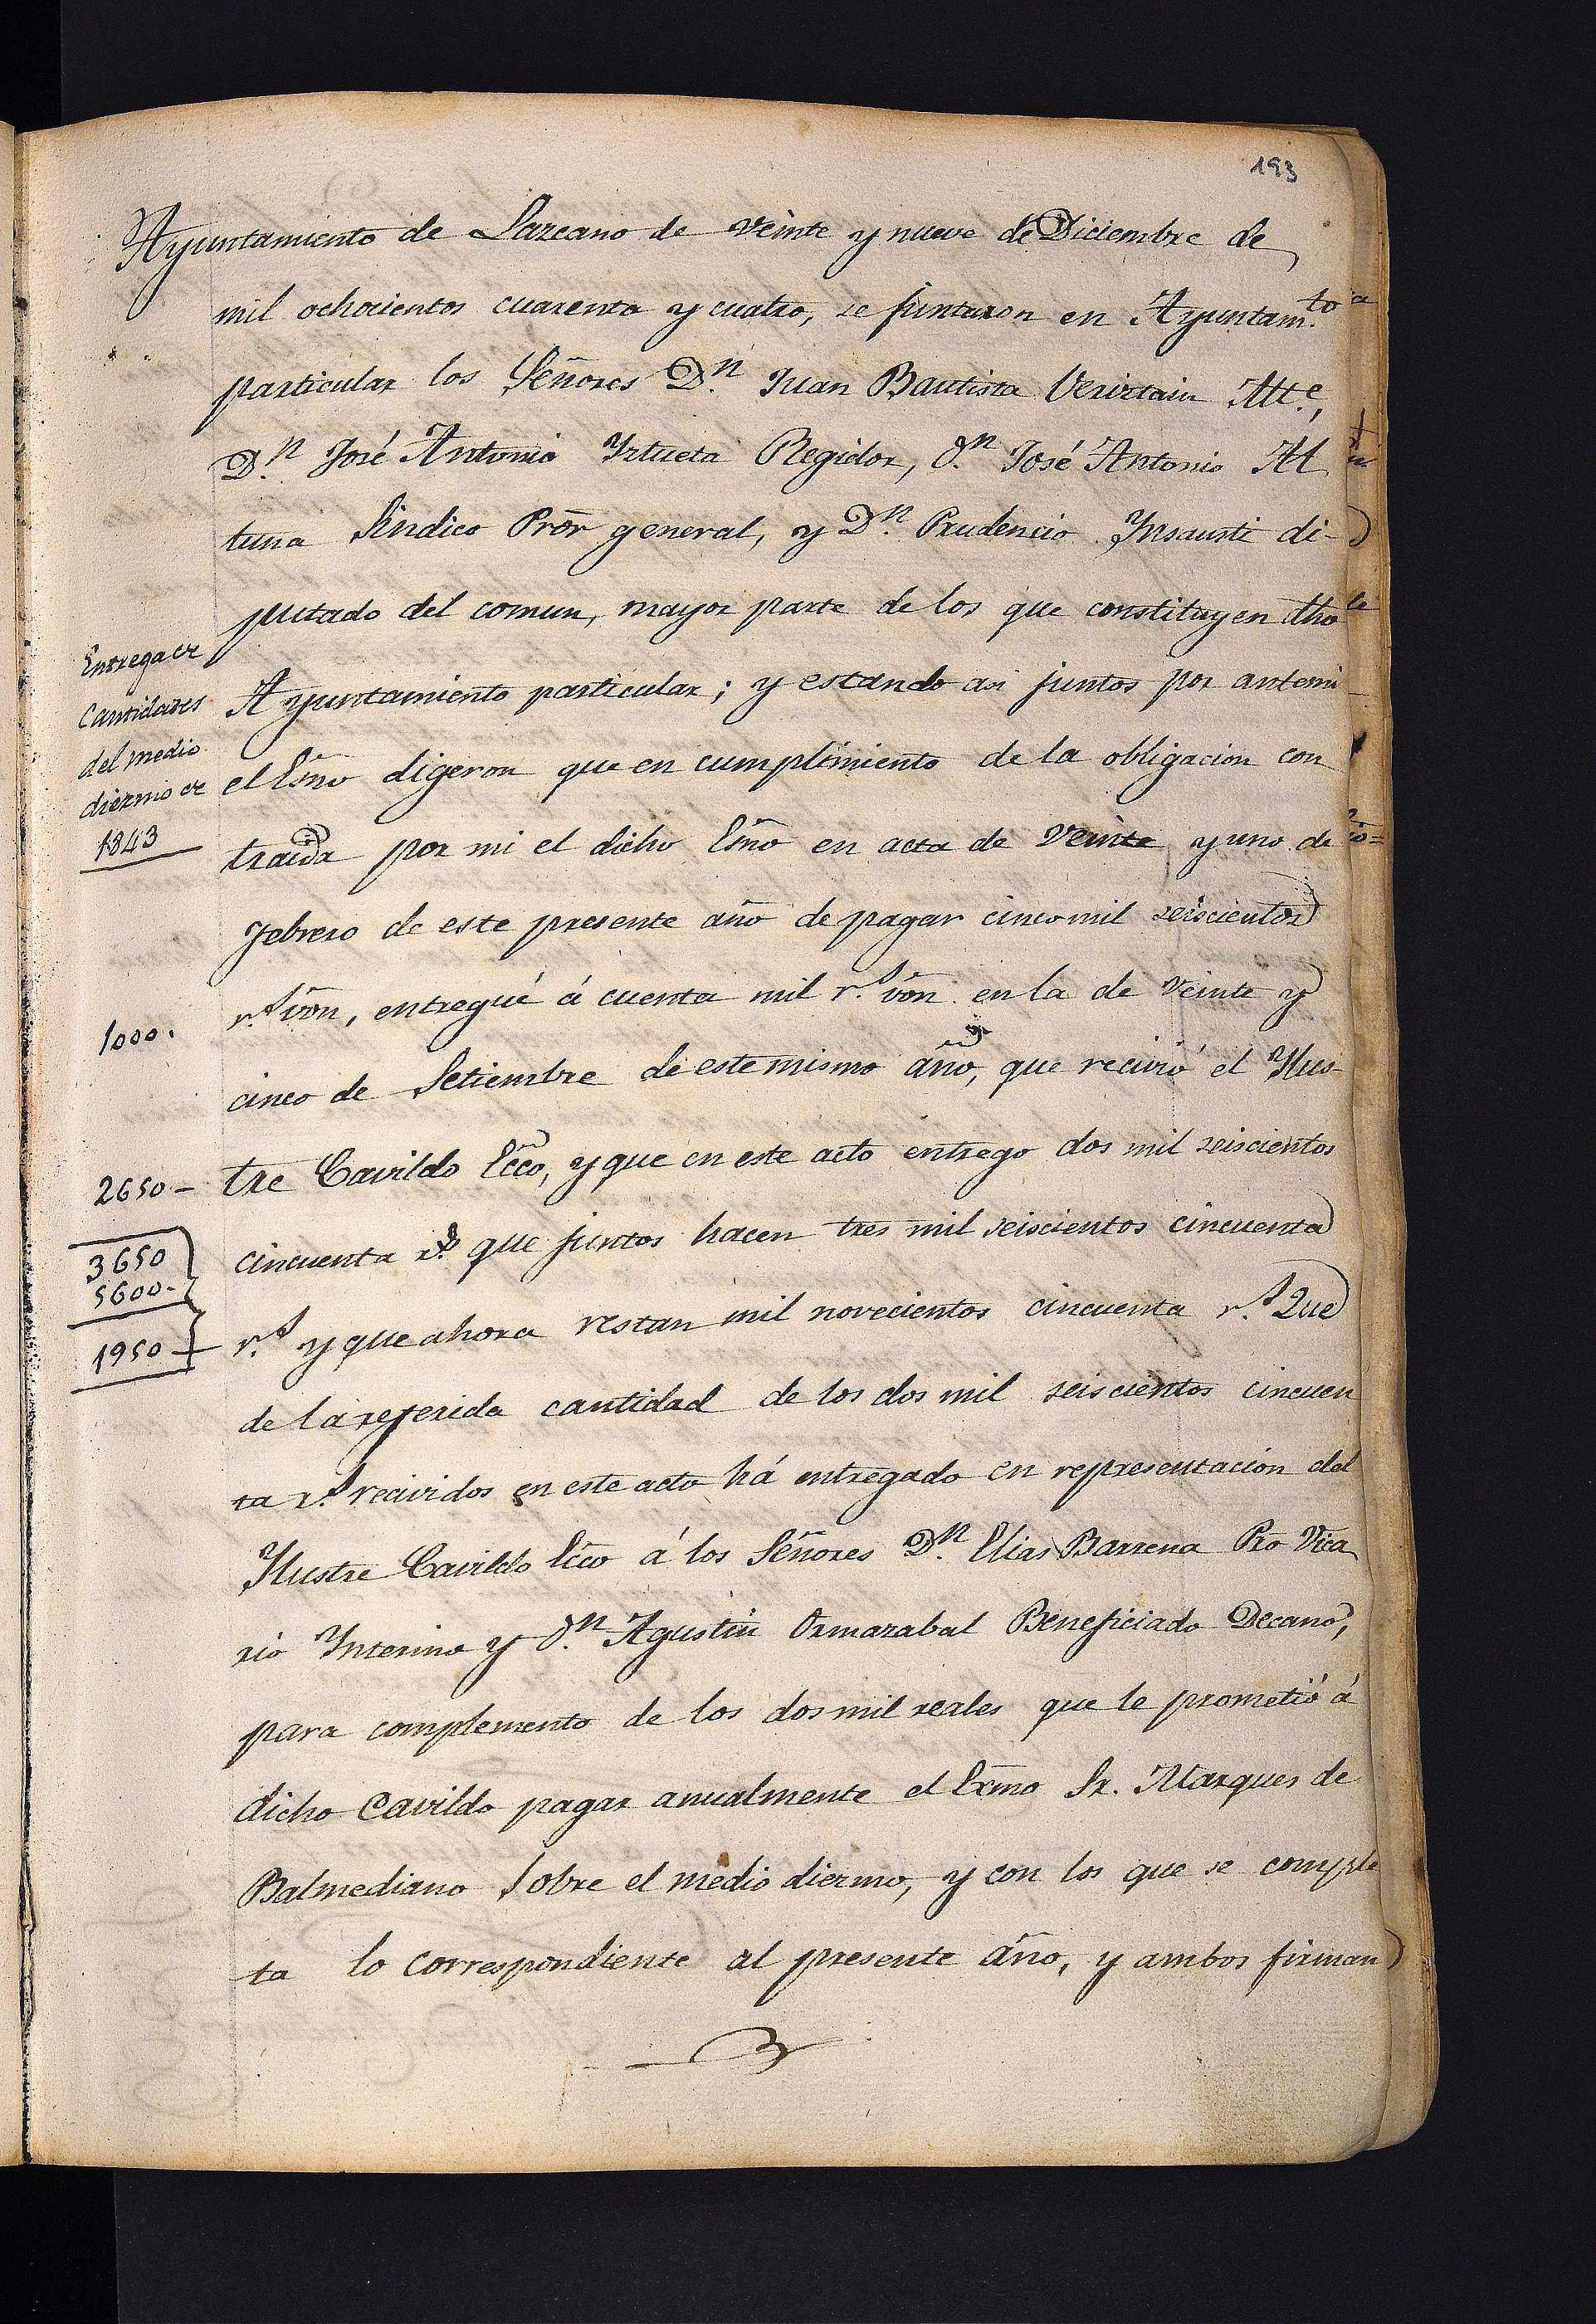 193
Ayuntamiento de Lazcano de veinte y nueve de Diciembre de
mil ochocientos cuarenta y cuatro, se juntaron en Ayuntam.to
particular los Señores D.n Juan Bautista Alt.e,
D.n José Antonio Yztueta Regidor, d.n José Antonio Al
tuna Sindico Prõr general, y D.n Prudencio Ynsausti di-
putado del comun, mayor parte de los que constituyen dho
Entrega de
cantidades
del medio
diezmo de
1843
Ayuntamiento particular; y estando asi juntos por antemi
el Esño digeron que en cumplimiento de la obligacion con
traida por mi el dicho Esño en acta de veinte y uno de
febrero de este presente año de pagar cinco mil seiscientos
1000.
r.s võn, entregué á cuenta mil r.s võn en la de veinte y
cinco de Setiembre de este mismo año, que recivió el Ylus-
2650-
tre Cavildo Ecco, y que en este acto entrego dos mil seiscientos
3650
5600-
cincuenta r.s que juntos hacen tres mil seiscientos cincuenta
1950-
r.s y que ahora restan mil novecientos cincuenta r.s Que
de la referida cantidad de los dos mil seiscientos cincuen
ta r.s recividos en este acto há entregado en representacion del
Ylustre Cavildo Ecco á los Señores D.n Elias Barrena Pro Vica
rio Ynterino y d.n Agustin Ormazabal Beneficiado Decano,
para complemento de los dos mil reales que le prometió á
dicho Cavildo pagar anualmente el Exmo Sr. Marques de
Balmediano sobre el medio diezmo, y con los que se comple
ta lo correspondiente al presente año, y ambos firman